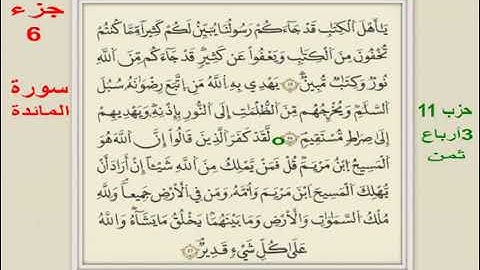 جزء
6
سورة
المائدة
يَٰأَهْلَ اَلْكِتَٰبِ قَدْ جَآءَكُمْ رَسُولُنَا يُبَيِّنُ لَكُمْ كَثِيراً مِّمَّا كُنتُمْ
تُخْفُونَ مِنَ اَلْكِتَٰبِ وَيَعْفُواْ عَن كَثِيرٍ قَدْ جَآءَكُم مِّنَ اَللَّهِ
نُورٌ وَكِتَٰبٌ مُّبِينٌ يَهْدِي بِهِ اِللَّهُ مَنِ اِتَّبَعَ رِضْوَٰنَهُۥ سُبُلَ
اَلسَّلَٰمِ وَيُخْرِجُهُم مِّنَ اَلظُّلُمَٰتِ إِلَى اَلنُّورِ بِإِذْنِهِۦ وَيَهْدِيهِمُۥ
إِلَىٰ صِرَٰطٍ مُّسْتَقِيمٍ لَّقَدْ كَفَرَ اَلذِينَ قَالُوٓاْ إِنَّ اَللَّهَ هُوَ
اَلْمَسِيحُ اُبْنُ مَرْيَمَ قُلْ فَمَن يَمْلِكُ مِنَ اَللَّهِ شَيْـًٔا إِنَ اَرَادَ أَنْ
يُّهْلِكَ اَلْمَسِيحَ اَبْنَ مَرْيَمَ وَأُمَّهُۥ وَمَن فِي اِلْأَرْضِ جَمِيعاً وَلِلهِ
مُلْكُ اُلسَّمَٰوَٰتِ وَالْأَرْضِ وَمَا بَيْنَهُمَا يَخْلُقُ مَا يَشَآءُ وَاللَّهُ
عَلَىٰ كُلِّ شَيْءٍ قَدِيرٌ
حزب 11
3أرباع
ثمن